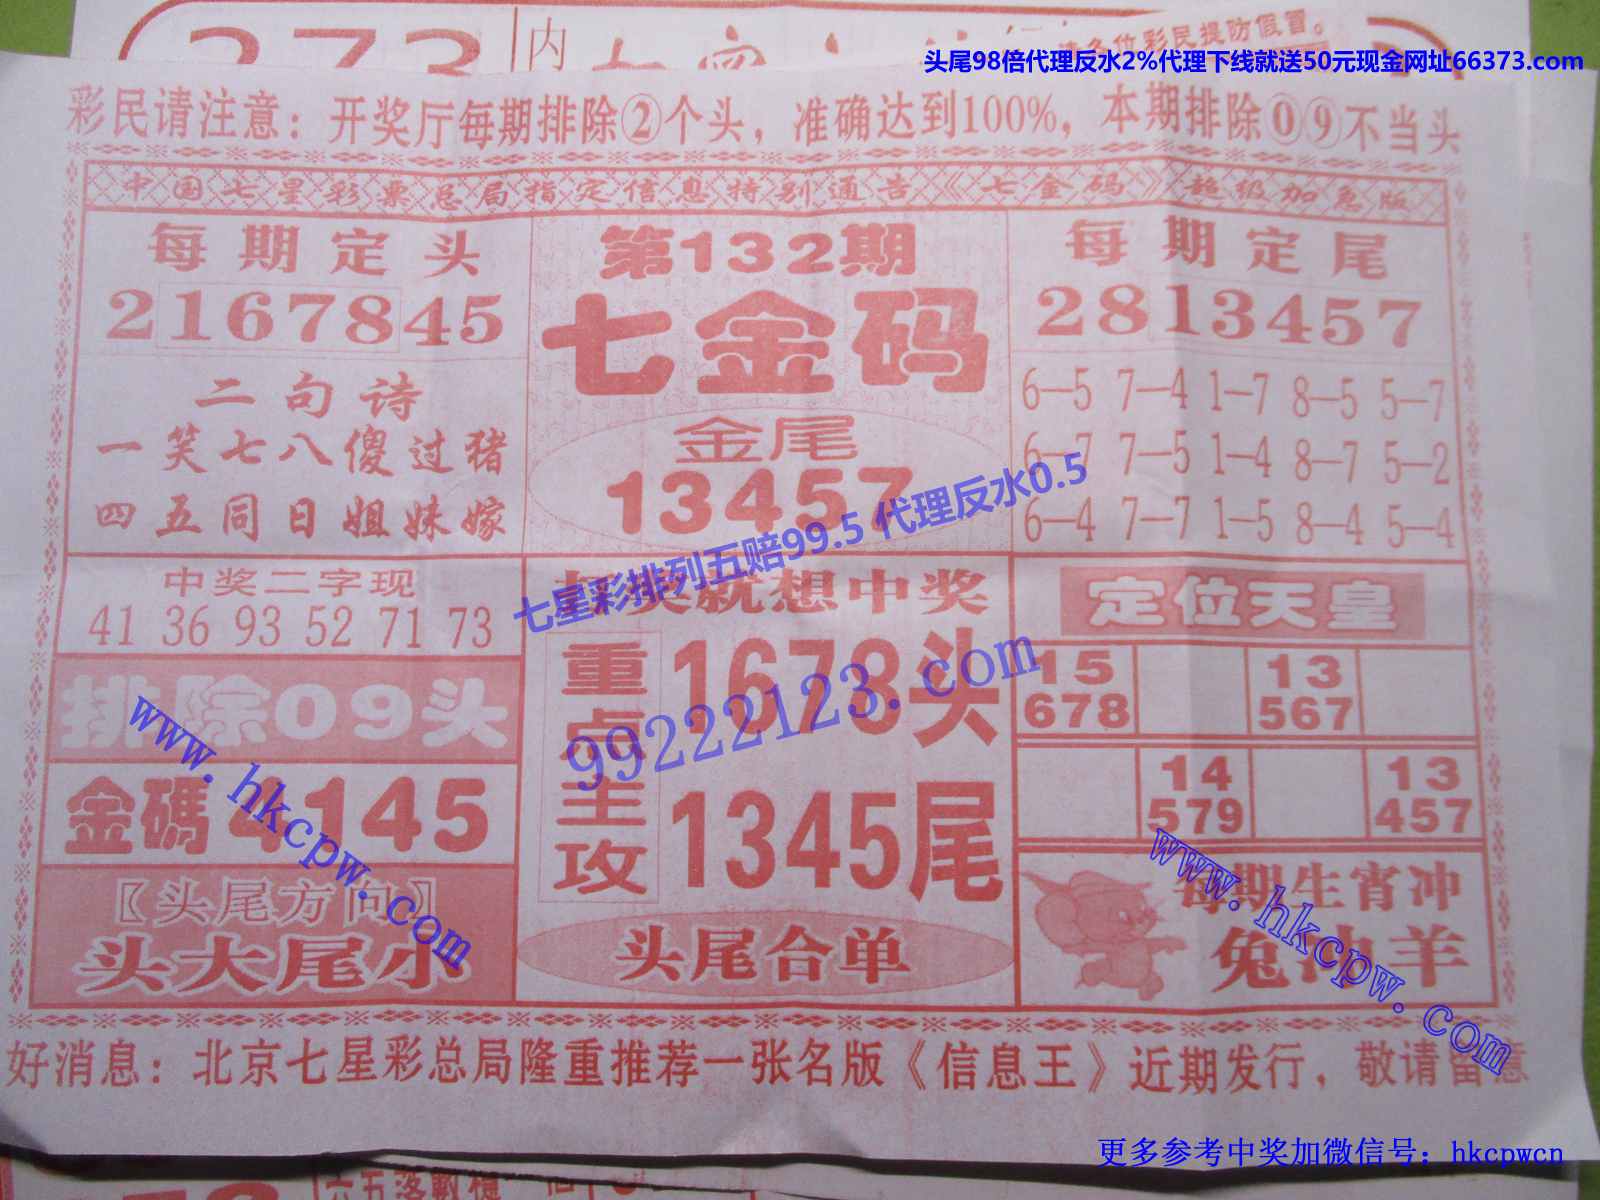 373
内
请各位彩民提防假冒。
头尾98倍代理反水2%代理下线就送50元现金网址66373.com
彩民请注意：开奖厅每期排除②个头，准确达到100%，本期排除⓪⑨不当头
中国七星彩票总局指定信息特别通告《七金码》超级加急版
每期定头
2167845
二句诗
一笑七八傻过猪
四五同日姐妹嫁
第132期
七金码
金尾
13457
每期定尾
2813457
6—5 7—4 1—7 8—5 5—7
6—7 7—5 1—4 8—7 5—2
6—4 7—7 1—5 8—4 5—4
七星彩排列五赔99.5 代理反水0.5
中奖二字现
41 36 93 52 71 73
排除09头
金碼4145
〖头尾方向〗
头大尾小
奖就想中奖
重点主攻
1678头
1345尾
头尾合单
99222123.com
定位天皇
15 13
678 567
14 13
579 457
每期生肖冲
兔冲羊
www.hkcpw.com
www.hkcpw.com
好消息：北京七星彩总局隆重推荐一张名版《信息王》近期发行，敬请留意
更多参考中奖加微信号：hkcpwcn
六五落數穩